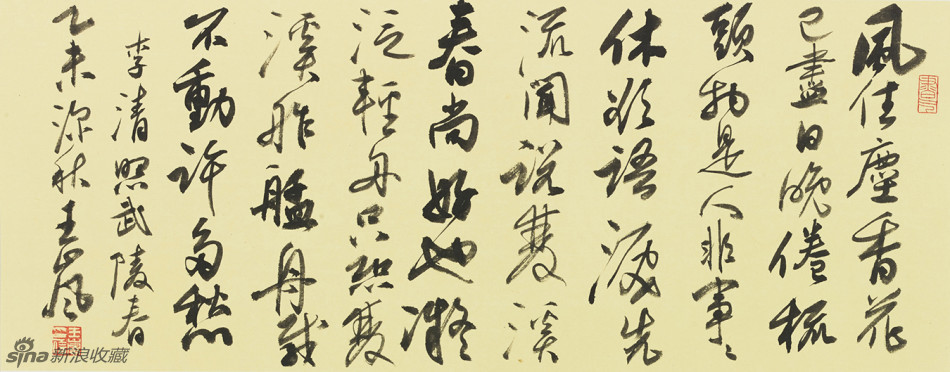 風住塵香花
已盡日晚倦梳
頭物是人非事〻
休欲語淚先
流聞說雙溪
春尚好也擬
泛輕舟只恐雙
溪舴艋舟載
不動許多愁
李清照武陵春
乙未深秋王風
sina新浪收藏